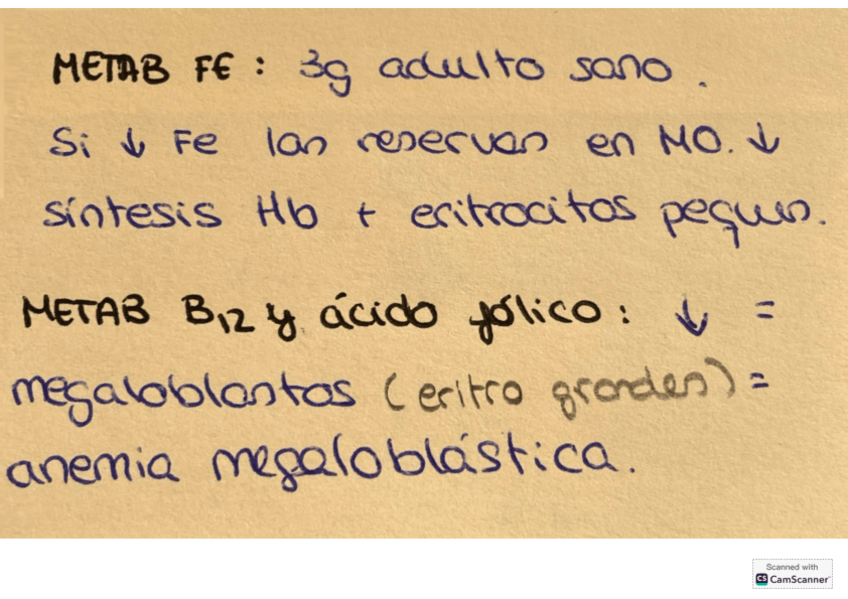 METAB FE: 3g adulto sano.
Si ↓ Fe las reservas en MO. ↓
síntesis Hb + eritrocitos pequeñ.
METAB B12 y ácido fólico: ↓ =
megaloblastos (eritro grandes) =
anemia megaloblástica.
Scanned with
CS CamScanner